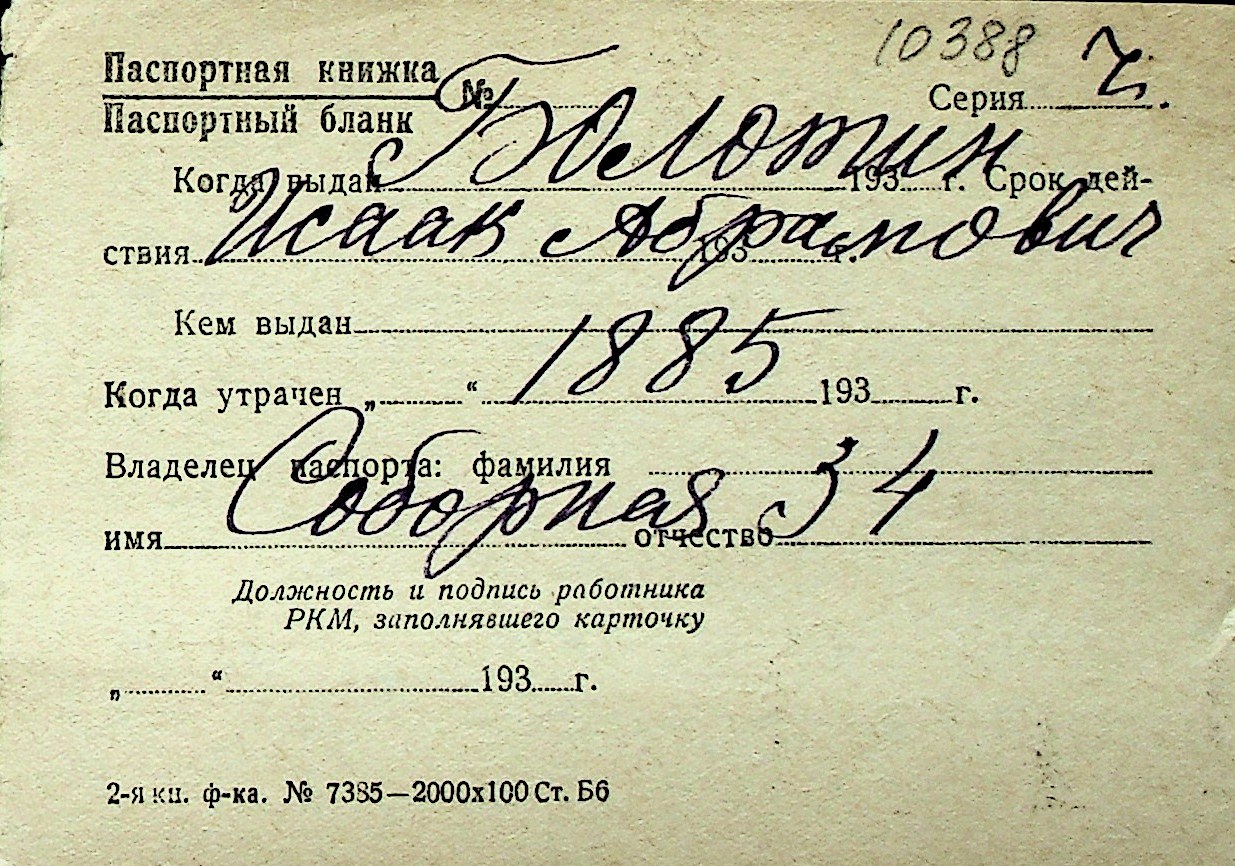 10388 ч
Паспортная книжка
№ Серия
Паспортный бланк
Болотин
Когда выдан 193 г. Срок дей-
Исаак Абрамович
ствия 193 г.
Кем выдан
1885
Когда утрачен „ “ 193 г.
Владелец паспорта: фамилия
Соборная 34
имя отчество
Должность и подпись работника
РКМ, заполнявшего карточку
„ “ 193 г.
2-я кн. ф-ка. № 7385—2000х100 Ст. Б6